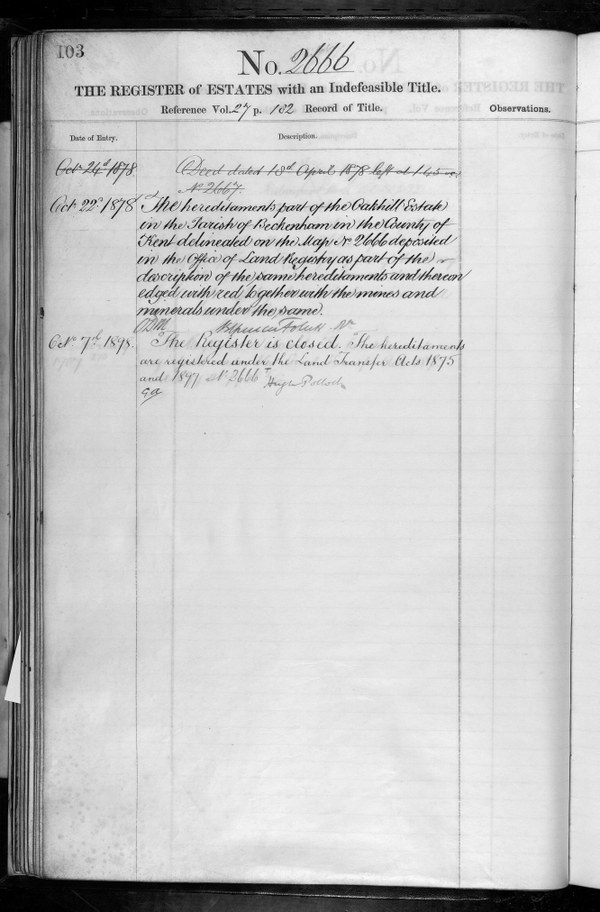 103
No. 2666
THE REGISTER of ESTATES with an Indefeasible Title.
Reference Vol. 27 p. 102 Record of Title.
Observations.
Date of Entry.
Description.
Octr 24th 1878. Deed dated 18th April 1878 left at 1.45
No 2667.
Octr 22d 1878 The hereditaments part of the Oakhill Estate
in the Parish of Beckenham in the County of
Kent delineated on the Map No 2666 deposited
in the Office of Land Registry as part of the
description of the same hereditaments and thereon
edged with red together with the mines and
minerals under the same.
Oct. 7th 1898. The Register is closed. The hereditaments
are registered under the Land Transfer Acts 1875
and 1897 No 2666 Hugh Pollock